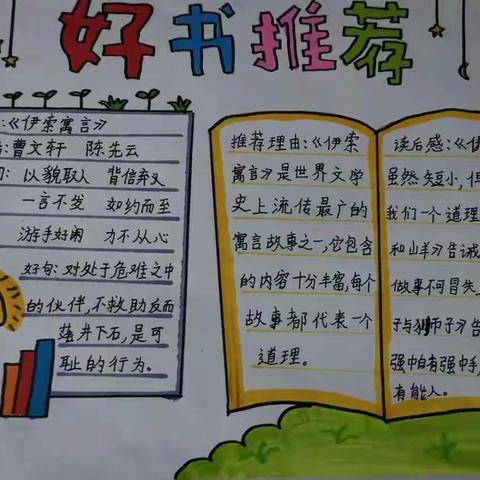 好书推荐
:《伊索寓言》
:曹文轩 陈先云
:以貌取人 背信弃义
一言不发 如约而至
游手好闲 力不从心
好句:对处于危难之中
的伙伴,不救助反而
落井下石,是可
耻的行为。
推荐理由:《伊索
寓言》是世界文学
史上流传最广的
寓言故事之一,它包含
的内容十分丰富,每个
故事都代表一个
道理。
读后感:《伊
虽然短小,但
我们一个道理
和山羊》告诫
做事不可冒失
子与狮子》告
强中自有强中手
有能人。